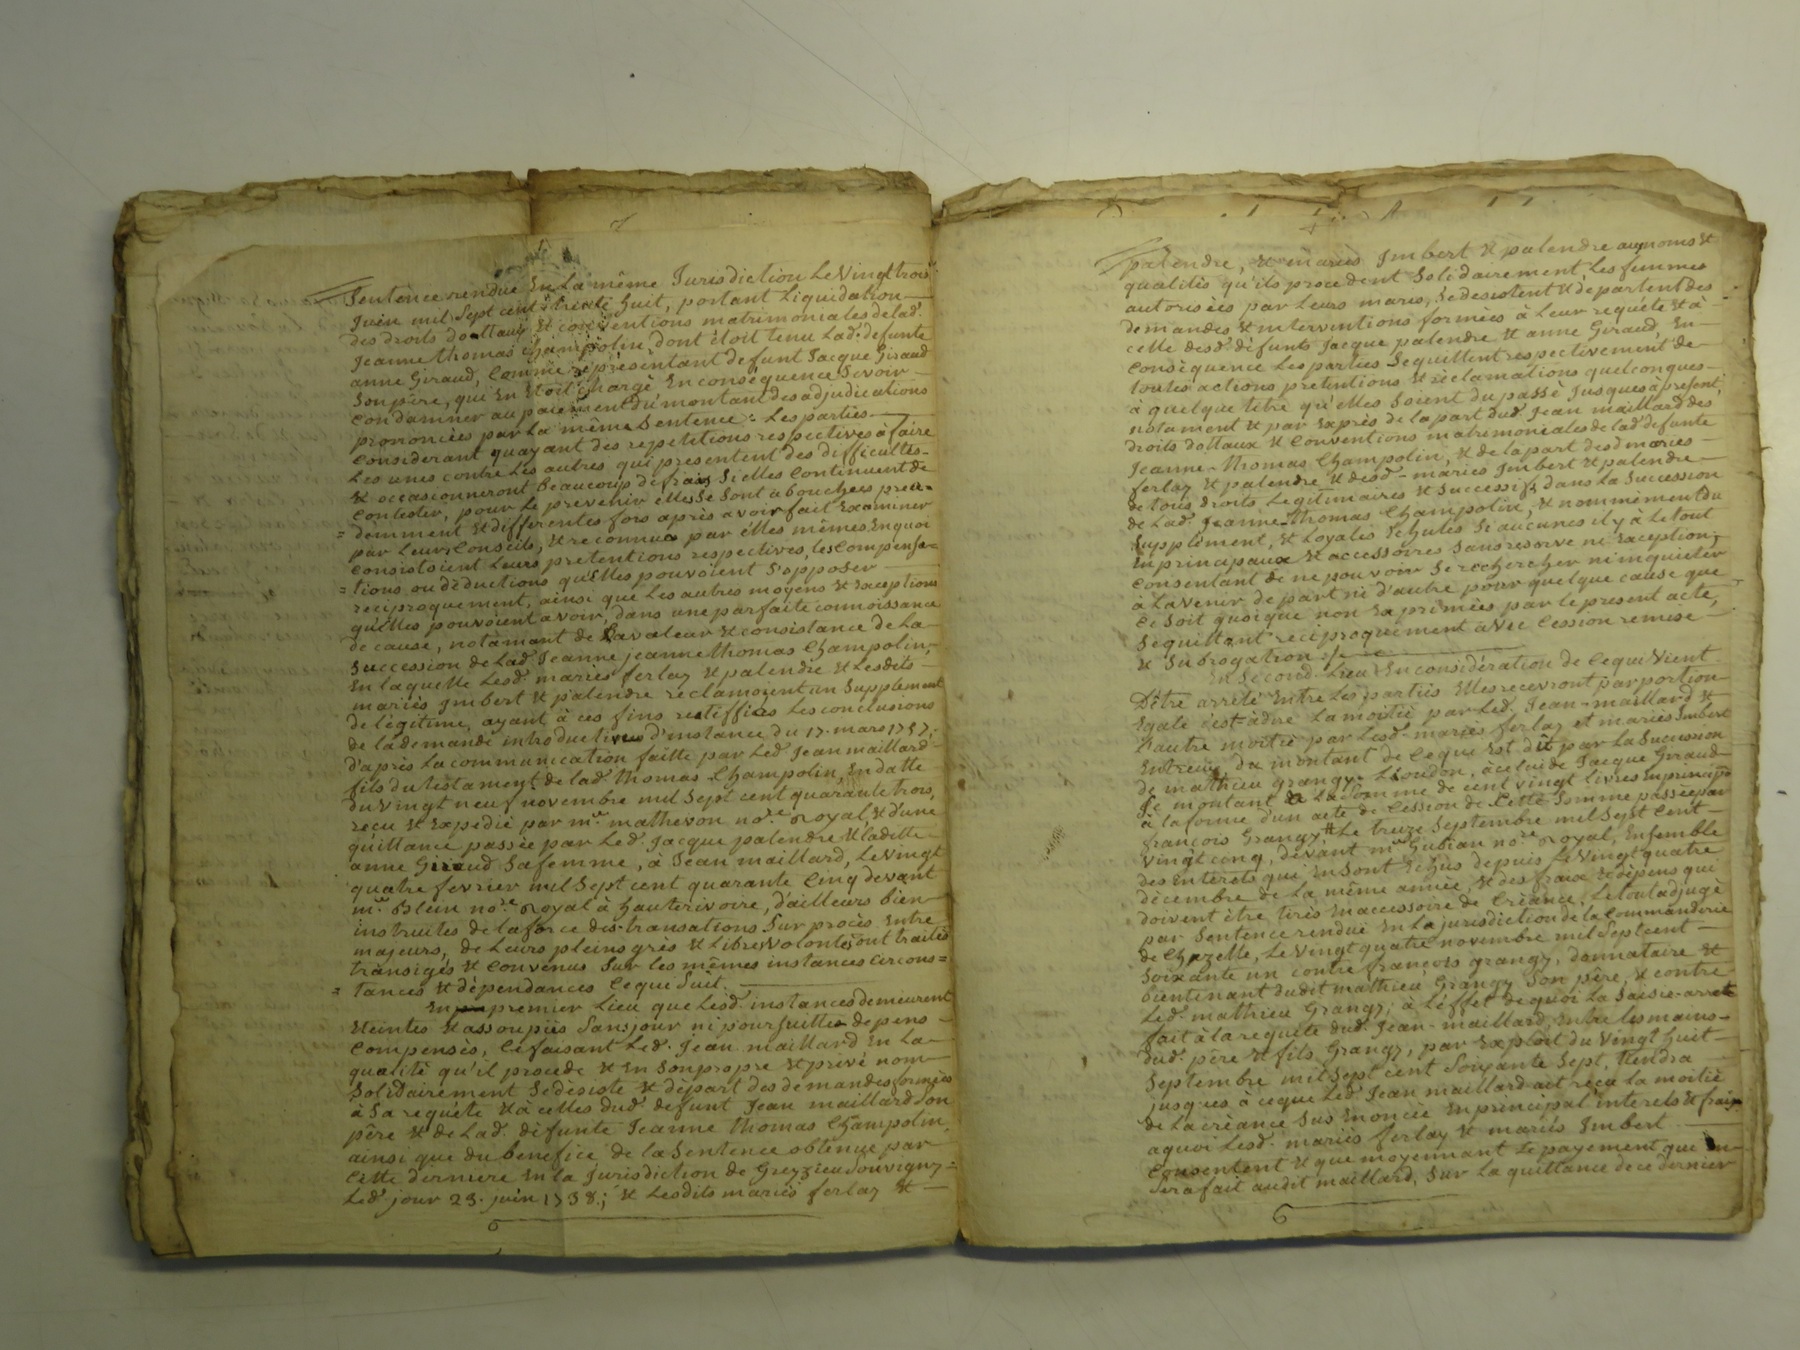 Sentence rendue En La même Jurisdiction Le Vingt trois
Juin mil Sept cent trente huit, portant Liquidation
des droits dottaux Et conventions matrimoniales de lad.
Jeanne thomas Champolin, dont étoit tenu Lad. defunte
anne Giraud, Comme réprésentant defunt Jacque Giraud
Son père, qui En Etoit Chargé En conséquence Se voir
Condamner au paiement du montant des adjudications
prononcées par La même Sentence: Les parties
Considerant quayant des repetitions respectives à faire
Les unes contre Les autres qui presentent des difficultés
Et occasionneront beaucoup de frais Si elles Continuent de
Contester, pour Le prevenir elles Se Sont abouchées precé=
=demment Et differentes fois après avoir fait Examiner
par Leurs Conseils, Et reconnue par elles mêmes En quoi
Consistoient Leurs pretentions respectives, les Compensa=
=tions ou déductions qu'Elles pouvoient S'opposer
reciproquement, ainsi que Les autres moyens Et Exceptions
quelles pouvoient avoir, dans une parfaite connoissance
de cause, notamant de La valeur Et consistance de La
Succession de Lad. Jeanne jeanne thomas Champolin,
En laquelle Lesd. mariés ferlay Et palendre Et Lesdits
mariés Imbert Et palendre réclamoyent un Supplement
de légitime, ayant à ces fins restiffiés Les conclusions
de la demande introductive d'instance du 17. mars 1757.
d'après La communication faitte par Led. Jean maillard
fils du testament de lad. thomas Champolin, En datte
du vingt neuf novembre mil Sept cent quarante trois,
reçu Et Expedié par me. mathevon nore. Royal, Et d'une
quittance passée par Led. Jacque palendre Et ladette
anne Giraud Sa femme, à Jean maillard, Le vingt
quatre fevrier mil Sept cent quarante Cinq devant
me. Blein nore. Royal à hauterivoire, d'ailleurs bien
instruites de la force des transations Sur procès Entre
majeurs, de Leurs pleins grés Et Libres Volontés ont traités
transigés Et Convenus Sur les mêmes instances Circons=
=tances Et dépendances Ce qui Suit.
En premier Lieu que Lesd. instances demeurent
Eteintes Et assoupies Sans jour ni poursuittes depens
Compensés, Ce faisant Led. Jean maillard En La
qualité qu'il procede Et En Son propre Et privé nom
Solidairement Se désiste Et départ des demandes formées
à Sa requête Et à celles dud. defunt Jean maillard Son
père Et de Lad. défunte Jeanne thomas Champolin,
ainsi que du benefice de la Sentence obtenue par
Cette derniere En la Jurisdiction de Greyzieu Souvigny
Led. jour 23. juin 1738.; Et Lesdits mariés ferlay Et
6
palendre, Et mariés Imbert Et palendre aux noms Et
qualités qu'ils procedent Solidairement, Les femmes
autorisées par Leurs maris, Se desistent Et departent des
demandes Et interventions formées à Leur requête Et à
celle desd. défunts Jacque palendre Et anne Giraud, En
conséquence Les parties Se quittent respectivement de
toutes actions pretentions Et réclamations quelconques
à quelque titre qu'elles Soient du passé Jusques à present,
notament Et par Exprès de la part dud. Jean maillard des
droits dottaux Et Conventions matrimoniales de lad. defunte
Jeanne Thomas Champolin, Et de la part desd. mariés
ferlay Et palendre Et desd. mariés Imbert Et palendre
de tous droits Légitimaires Et Successifs dans La Succession
de Lad. Jeanne Thomas Champolin, Et nommément du
Supplément, Et Loyalis Echutes Si aucunes il y à Le tout
En principaux Et accessoires Sans reserve ni Exception,
Consentant de ne pouvoir Se rechercher ni inquieter
à Lavenir de part ni d'autre pour quelque cause que
Ce Soit quoique non Exprimées par le present acte,
Se quittant réciproquement avec Cession remise
Et Subrogation
En Second Lieu En considération de Ce qui Vient
D'être arrêté Entre Les parties Elles recevront par portion
Egale c'est-à-dire La moitié par Led. Jean-maillard Et
L'autre moitié par Lesd. mariés ferlay et mariés Imbert
Entreux du montant de Ce qui Est dût par La Succession
de mathieu Grangy, à celui de Jacque Giraud
Le montant de La Somme de cent vingt Livres En principal
à la forme d'un acte de Cession de Cette Somme passée par
françois Grangy Le treize Septembre mil Sept Cent
vingt cinq, devant me. Gubian nore. Royal, Ensemble
des Interets qui En Sont Echus depuis Le Vingt quatre
décembre de La même année, Et des fraix Et dépens qui
doivent être tirés En accessoire de Créance, Le tout adjugé
par Sentence rendue En La jurisdiction de la Commanderie
de Chazelle, Le Vingt quatre novembre mil Sept cent
Soixante un contre françois grangy, donnataire Et
bientenant dudit mathieu Grangy Son père, Et contre
Led. mathieu Grangy; à L'effet de quoi La Saisie-arrete
fait à la requête dud. Jean-maillard, Entre les mains
dud. père Et fils Grangy, par Exploit du Vingt huit
Septembre mil Sept cent Soixante Sept, tiendra
jusques à ce que Led. Jean maillard ait reçu La moitié
de La créance Sus Enoncée En principal interets Et fraix
a quoi Lesd. mariés ferlay Et mariés Imbert
Consentent Et que moyennant Le payement qui En
Sera fait audit maillard, Sur La quittance de ce dernier
6